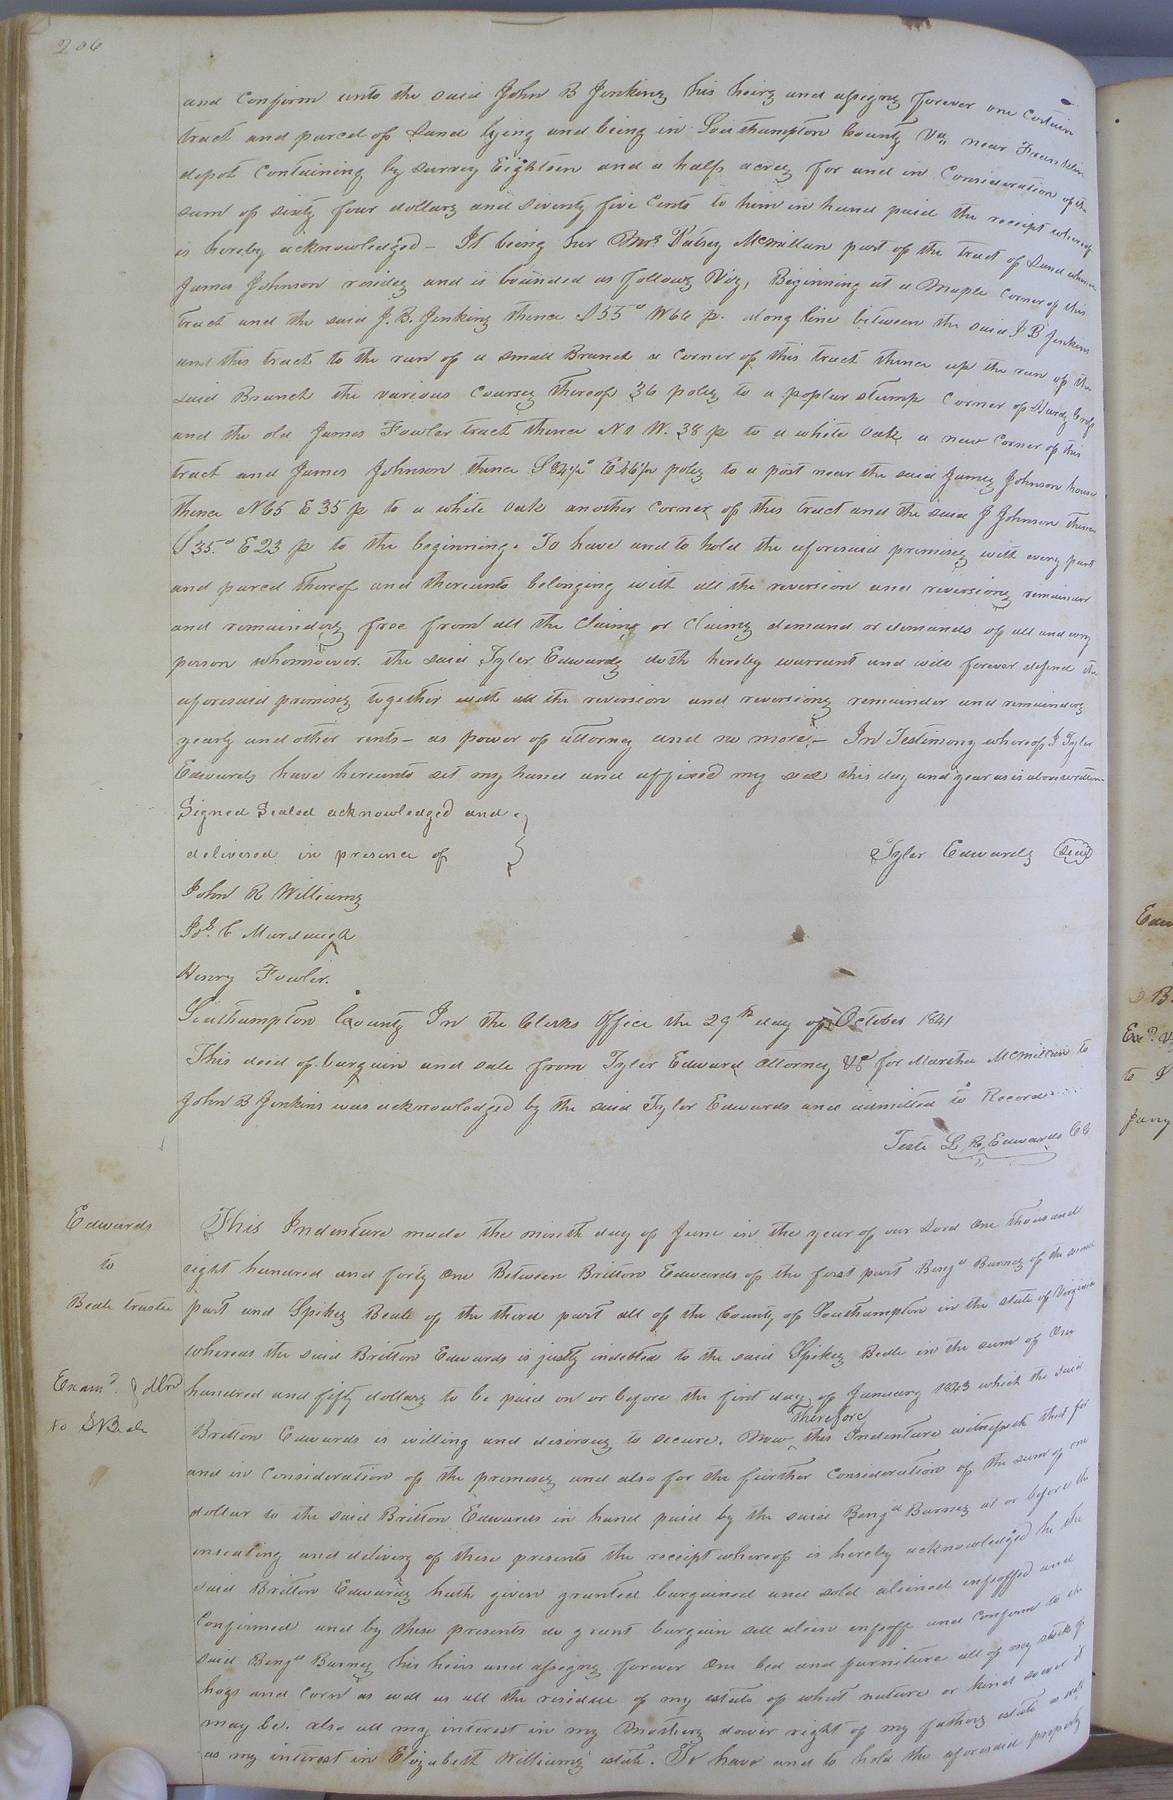 206
and confirm unto the said John B Jenkins his heirs and assigns forever one certain
tract and parcel of Land lying and being in Southampton County Va near Franklin
depot containing by survey Eighteen and a half acres for and in Consideration of the
sum of sixty four dollars and seventy five Cents to him in hand paid the receipt whereof
is hereby acknowledged - It being her Mrs Patsey Mcmillan part of the tract of Land whereon
James Johnson resides and is bounded as follows Viz, Beginning at a Maple corner of this
tract and the said J. B. Jenkins thence S 55° W 66 p. along line between the said J B Jenkins
and this tract to the run of a small Branch a corner of this tract thence up the run of the
said Branch the various courses thereof 36 poles to a poplar stump corner of
and the old James Fowler tract thence N 1 W. 38 p to a white oak a new corner of this
tract and James Johnson thence S 34½° E 46½ poles to a post near the said James Johnson house
thence N 65 E 35 p to a white oak another corner of this tract and the said J Johnson thence
S 35.° E 23 p to the beginning. To have and to hold the aforesaid premises with every part
and parcel thereof and thereunto belonging with all the reversion and reversions remainder
and remainders free from all the claims or claims demand or demands of all and every
person whomsoever. the said Tyler Edwards doth hereby warrant and will forever defend the
aforesaid premises together with all the reversion and reversions remainder and remainders
yearly and other rents - as power of attorney and no more. - In Testimony whereof I Tyler
Edwards have hereunto set my hand and affixed my seal this day and year as is above written
Signed Sealed acknowledged and }
delivered in presence of } Tyler Edwards Seal
John R Williams
Jos. C Murdaugh
Henry Fowler.
Southampton County In the Clerks Office the 29th day of October 1841
This deed of bargain and sale from Tyler Edward Attorney &c for Marsha Mcmillan to
John B Jenkins was acknowledged by the said Tyler Edwards and admitted to Record....
Teste L. R. Edwards CC
Edwards
to
Beale trustee
Examd. & dld
to S Beale
This Indenture made the ninth day of June in the year of our Lord one thousand
eight hundred and forty one Between Britton Edwards of the first part Benja Barnes of the second
part and Spikes Beale of the third part all of the County of Southampton in the state of Virginia
whereas the said Britton Edwards is justly indebted to the said Spikes Beale in the sum of One
hundred and fifty dollars to be paid on or before the first day of January 1843 which the said
Britton Edwards is willing and desirous to secure. Now Therefore this Indenture witnesseth that for
and in consideration of the premises and also for the further consideration of the sum of one
dollar to the said Britton Edwards in hand paid by the said Benja Barnes at or before the
ensealing and delivery of these presents the receipt whereof is hereby acknowledged he the
said Britton Edwards hath given granted bargained and sold aliened enfeoffed and
confirmed and by these presents do grant bargain sell alien enfeoff and confirm to the
said Benja Barnes his heirs and assigns forever One bed and furniture all of my stock of
hogs and corn as well as all the residue of my estate of what nature or kind soever it
may be. also all my interest in my Mothers dower right of my fathers estate as well
as my interest in Elizabeth Williams estate. To have and to hold the aforesaid property